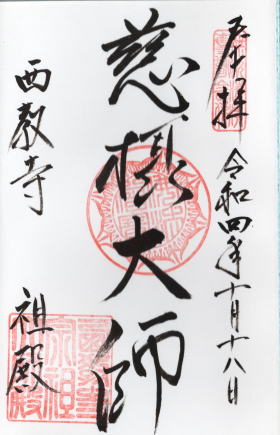 奉拝
令和四年十月十八日
慈摂大師
西教寺
祖殿